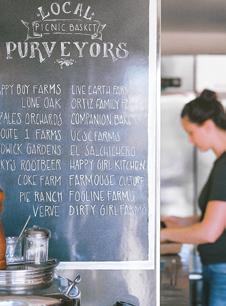 LOCAL
PICNIC BASKET
PURVEYORS
APPY BUY FARMS
LONE OAK
ZALES ORCHARDS
ROUTE 1 FARMS
DWICK GARDENS
KY'S ROOTBEER
COKE FARM
PIE RANCH
VERVE
LIVE EARTH FARM
ORTIZ FAMILY F
COMPANION BAKE
UCSC FARMS
EL SALCHICHERO
HAPPY GIRL KITCHEN
FARMHOUSE CULTURE
FOGLINE FARMS
DIRTY GIRL FARMS